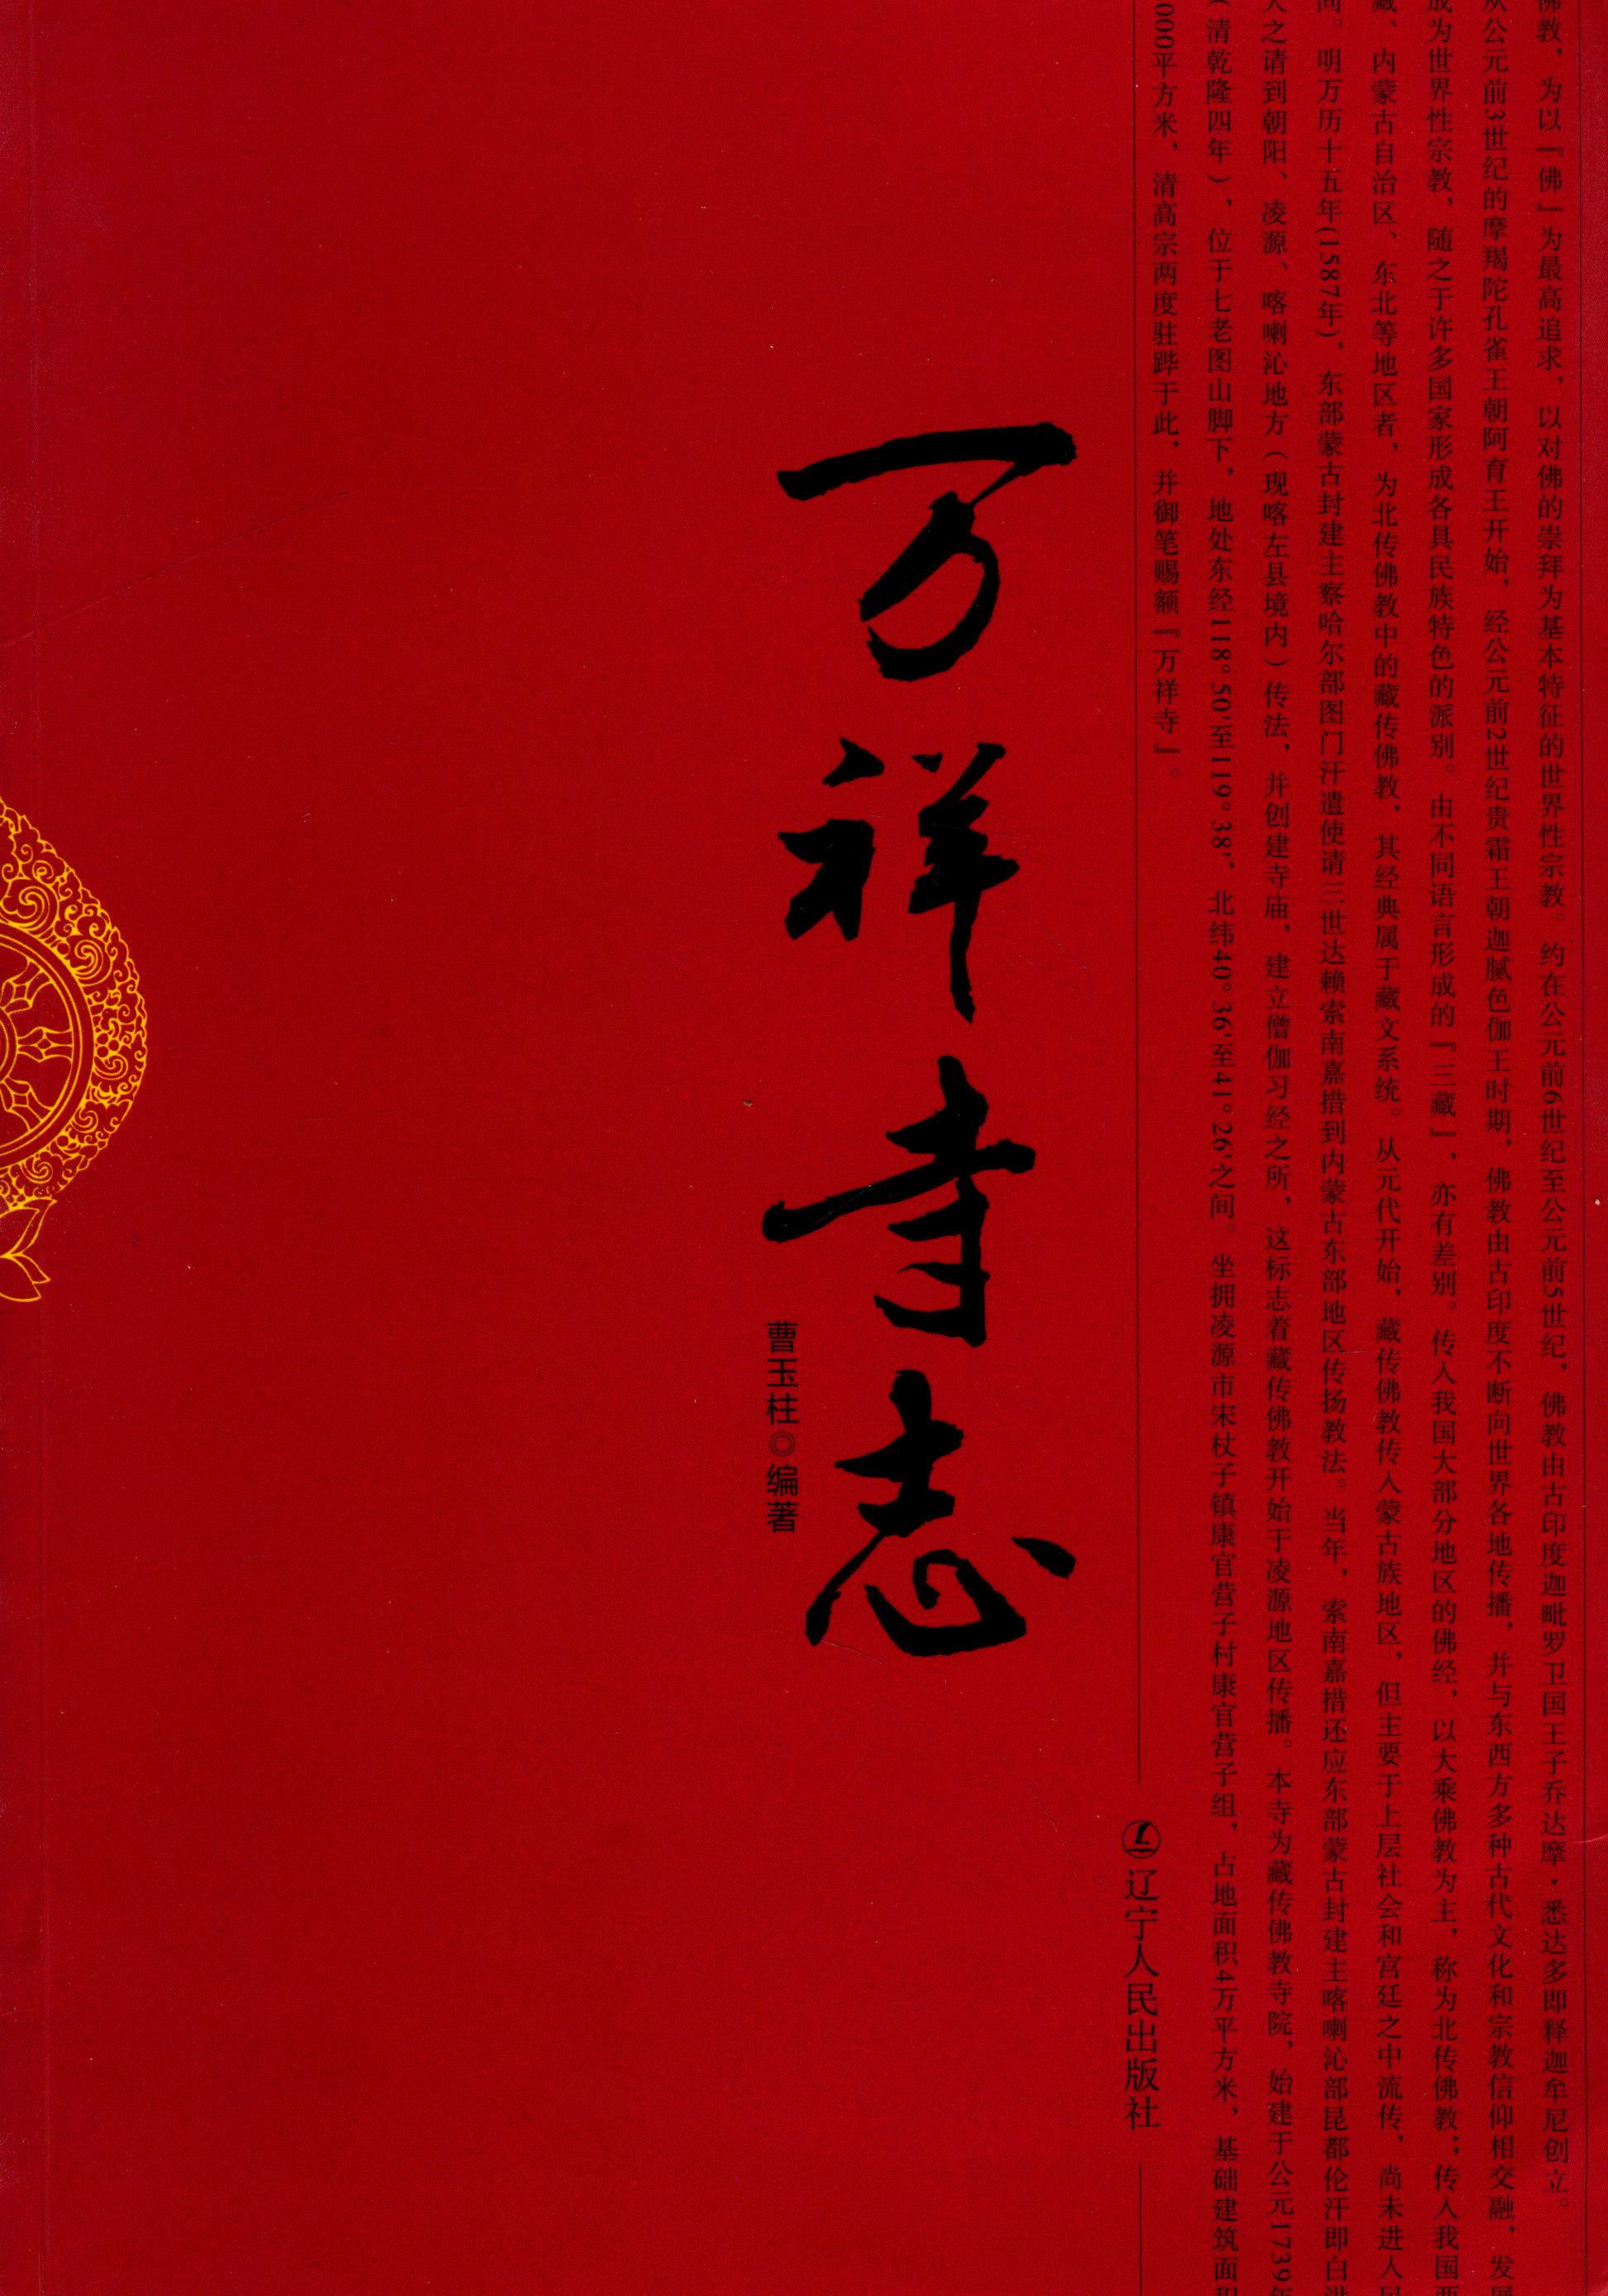 佛教，为以『佛』为最高追求，以对佛的崇拜为基本特征的世界性宗教。约在公元前6世纪至公元前5世纪，佛教由古印度迦毗罗卫国王子乔达摩·悉达多即释迦牟尼创立。
从公元前3世纪的摩羯陀孔雀王朝阿育王开始，经公元前2世纪贵霜王朝迦腻色伽王时期，佛教由古印度不断向世界各地传播，并与东西方多种古代文化和宗教信仰相交融，发展
成为世界性宗教，随之于许多国家形成各具民族特色的派别。由不同语言形成的『三藏』，亦有差别。传入我国大部分地区的佛经，以大乘佛教为主，称为北传佛教；传入我国西
藏、内蒙古自治区、东北等地区者，为北传佛教中的藏传佛教，其经典属于藏文系统。从元代开始，藏传佛教传入蒙古族地区，但主要于上层社会和宫廷之中流传，尚未进入民
间。明万历十五年(1587年)，东部蒙古封建主察哈尔部图门汗遣使请三世达赖索南嘉措到内蒙古东部地区传扬教法。当年，索南嘉措还应东部蒙古封建主喀喇沁部昆都伦汗即白洪
大之请到朝阳、凌源、喀喇沁地方（现喀左县境内）传法，并创建寺庙，建立僧伽习经之所，这标志着藏传佛教开始于凌源地区传播。本寺为藏传佛教寺院，始建于公元1739年
（清乾隆四年），位于七老图山脚下，地处东经118°50'至119°38'，北纬40°36'至41°26'之间。坐拥凌源市宋杖子镇康官营子村康官营子组，占地面积4万平方米，基础建筑面积
000平方米，清高宗两度驻跸于此，并御笔赐额『万祥寺』。
辽宁人民出版社
万祥寺志
曹玉柱◎编著